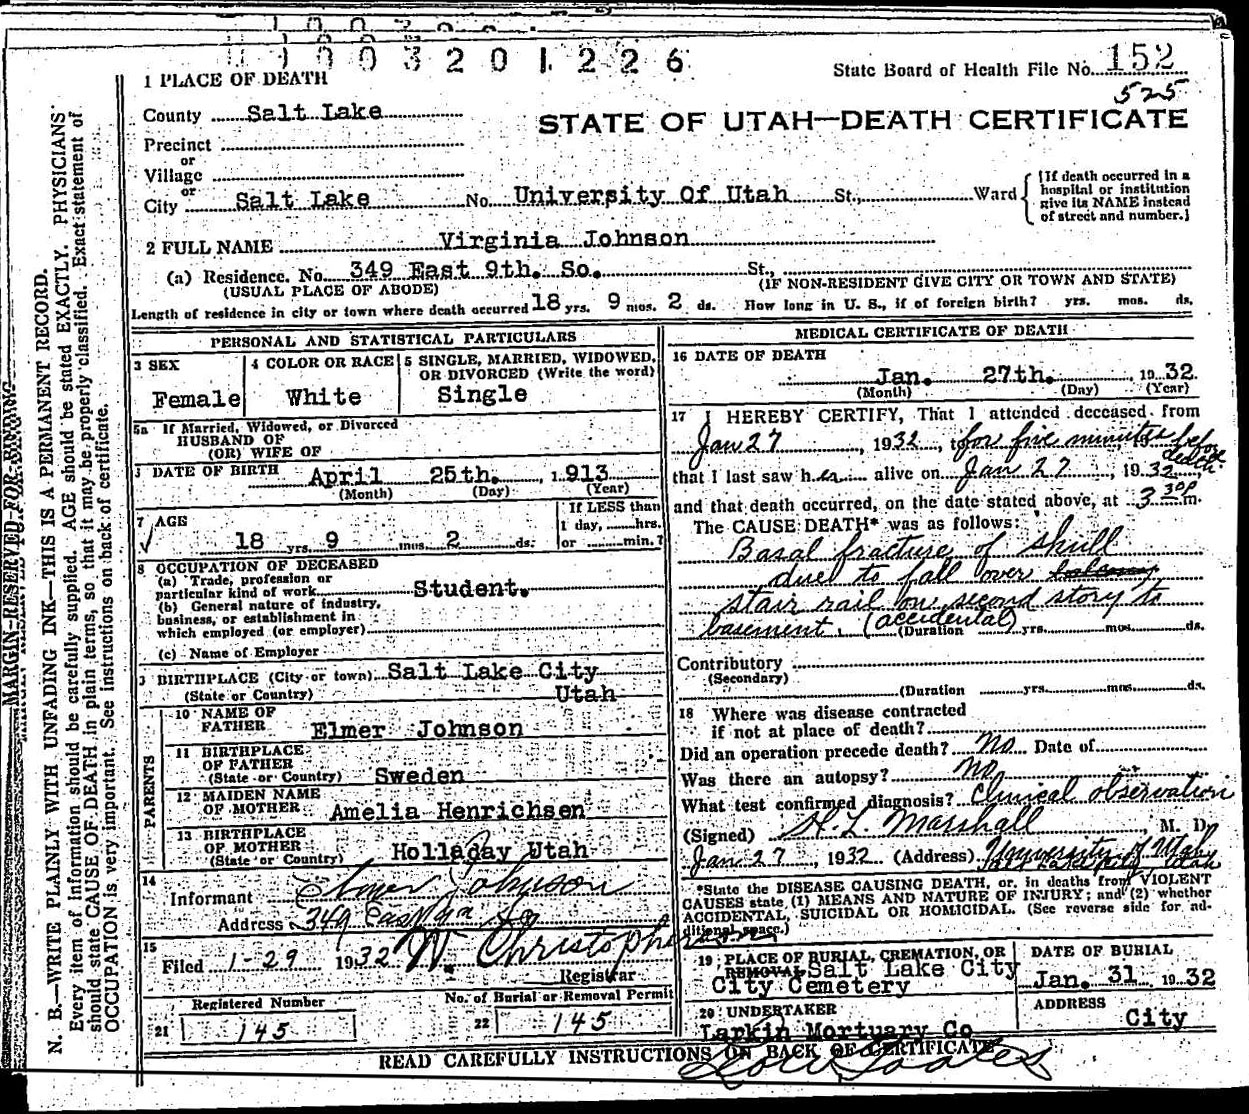 1003201226
State Board of Health File No. 152
525
1 PLACE OF DEATH
STATE OF UTAH—DEATH CERTIFICATE
County Salt Lake
Precinct
or
Village
or
City Salt Lake No. University Of Utah St., Ward
{If death occurred in a
hospital or institution
give its NAME instead
of street and number.}
2 FULL NAME Virginia Johnson
(a) Residence. No. 349 East 9th. So. St.,
(USUAL PLACE OF ABODE) (IF NON-RESIDENT GIVE CITY OR TOWN AND STATE)
Length of residence in city or town where death occurred 18 yrs. 9 mos. 2 ds. How long in U. S., if of foreign birth? yrs. mos. ds.
PERSONAL AND STATISTICAL PARTICULARS
3 SEX
Female
4 COLOR OR RACE
White
5 SINGLE, MARRIED, WIDOWED,
OR DIVORCED (Write the word)
Single
5a If Married, Widowed, or Divorced
HUSBAND OF
(OR) WIFE OF
DATE OF BIRTH April 25th. , 1913
(Month) (Day) (Year)
7 AGE
18 yrs. 9 mos. 2 ds.
If LESS than
1 day, hrs.
or min.?
8 OCCUPATION OF DECEASED
(a) Trade, profession or
particular kind of work Student.
(b) General nature of industry,
business, or establishment in
which employed (or employer)
(c) Name of Employer
BIRTHPLACE (City or town) Salt Lake City
(State or Country) Utah
PARENTS
10 NAME OF
FATHER Elmer Johnson
11 BIRTHPLACE
OF FATHER
(State or Country) Sweden
12 MAIDEN NAME
OF MOTHER Amelia Henrichsen
13 BIRTHPLACE
OF MOTHER
(State or Country) Holladay Utah
14
Informant Elmer Johnson
Address 349 East 9th So
15
Filed 1-29 1932 W. Christopherson
Registrar
Registered Number
21 145
No. of Burial or Removal Permit
22 145
MEDICAL CERTIFICATE OF DEATH
16 DATE OF DEATH
Jan. 27th. , 1932.
(Month) (Day) (Year)
17 I HEREBY CERTIFY, That I attended deceased from
Jan 27, 1932, to for five minutes before
death
that I last saw her alive on Jan 27, 1932
and that death occurred, on the date stated above, at 3 30 P m.
The CAUSE DEATH* was as follows:
Basal fracture of skull
due to fall over balcony
stair rail on second story to
basement. (accidental)
(Duration yrs. mos. ds.
Contributory
(Secondary)
(Duration yrs. mos. ds.
18 Where was disease contracted
if not at place of death?
Did an operation precede death? No Date of
Was there an autopsy? No
What test confirmed diagnosis? Clinical observation
(Signed) H. L. Marshall, M. D.
Jan 27, 1932 (Address) University of Utah
Utah
*State the DISEASE CAUSING DEATH, or, in deaths from VIOLENT
CAUSES state (1) MEANS AND NATURE OF INJURY; and (2) whether
ACCIDENTAL, SUICIDAL OR HOMICIDAL. (See reverse side for ad-
ditional space.)
19 PLACE OF BURIAL, CREMATION, OR
REMOVAL Salt Lake City
City Cemetery
DATE OF BURIAL
Jan. 31 1932
20 UNDERTAKER
Larkin Mortuary Co
ADDRESS
City
READ CAREFULLY INSTRUCTIONS ON BACK OF CERTIFICATE
MARGIN RESERVED FOR BINDING
N. B.—WRITE PLAINLY WITH UNFADING INK—THIS IS A PERMANENT RECORD.
Every item of information should be carefully supplied. AGE should be stated EXACTLY. PHYSICIANS
should state CAUSE OF DEATH in plain terms, so that it may be properly classified. Exact statement of
OCCUPATION is very important. See instructions on back of certificate.